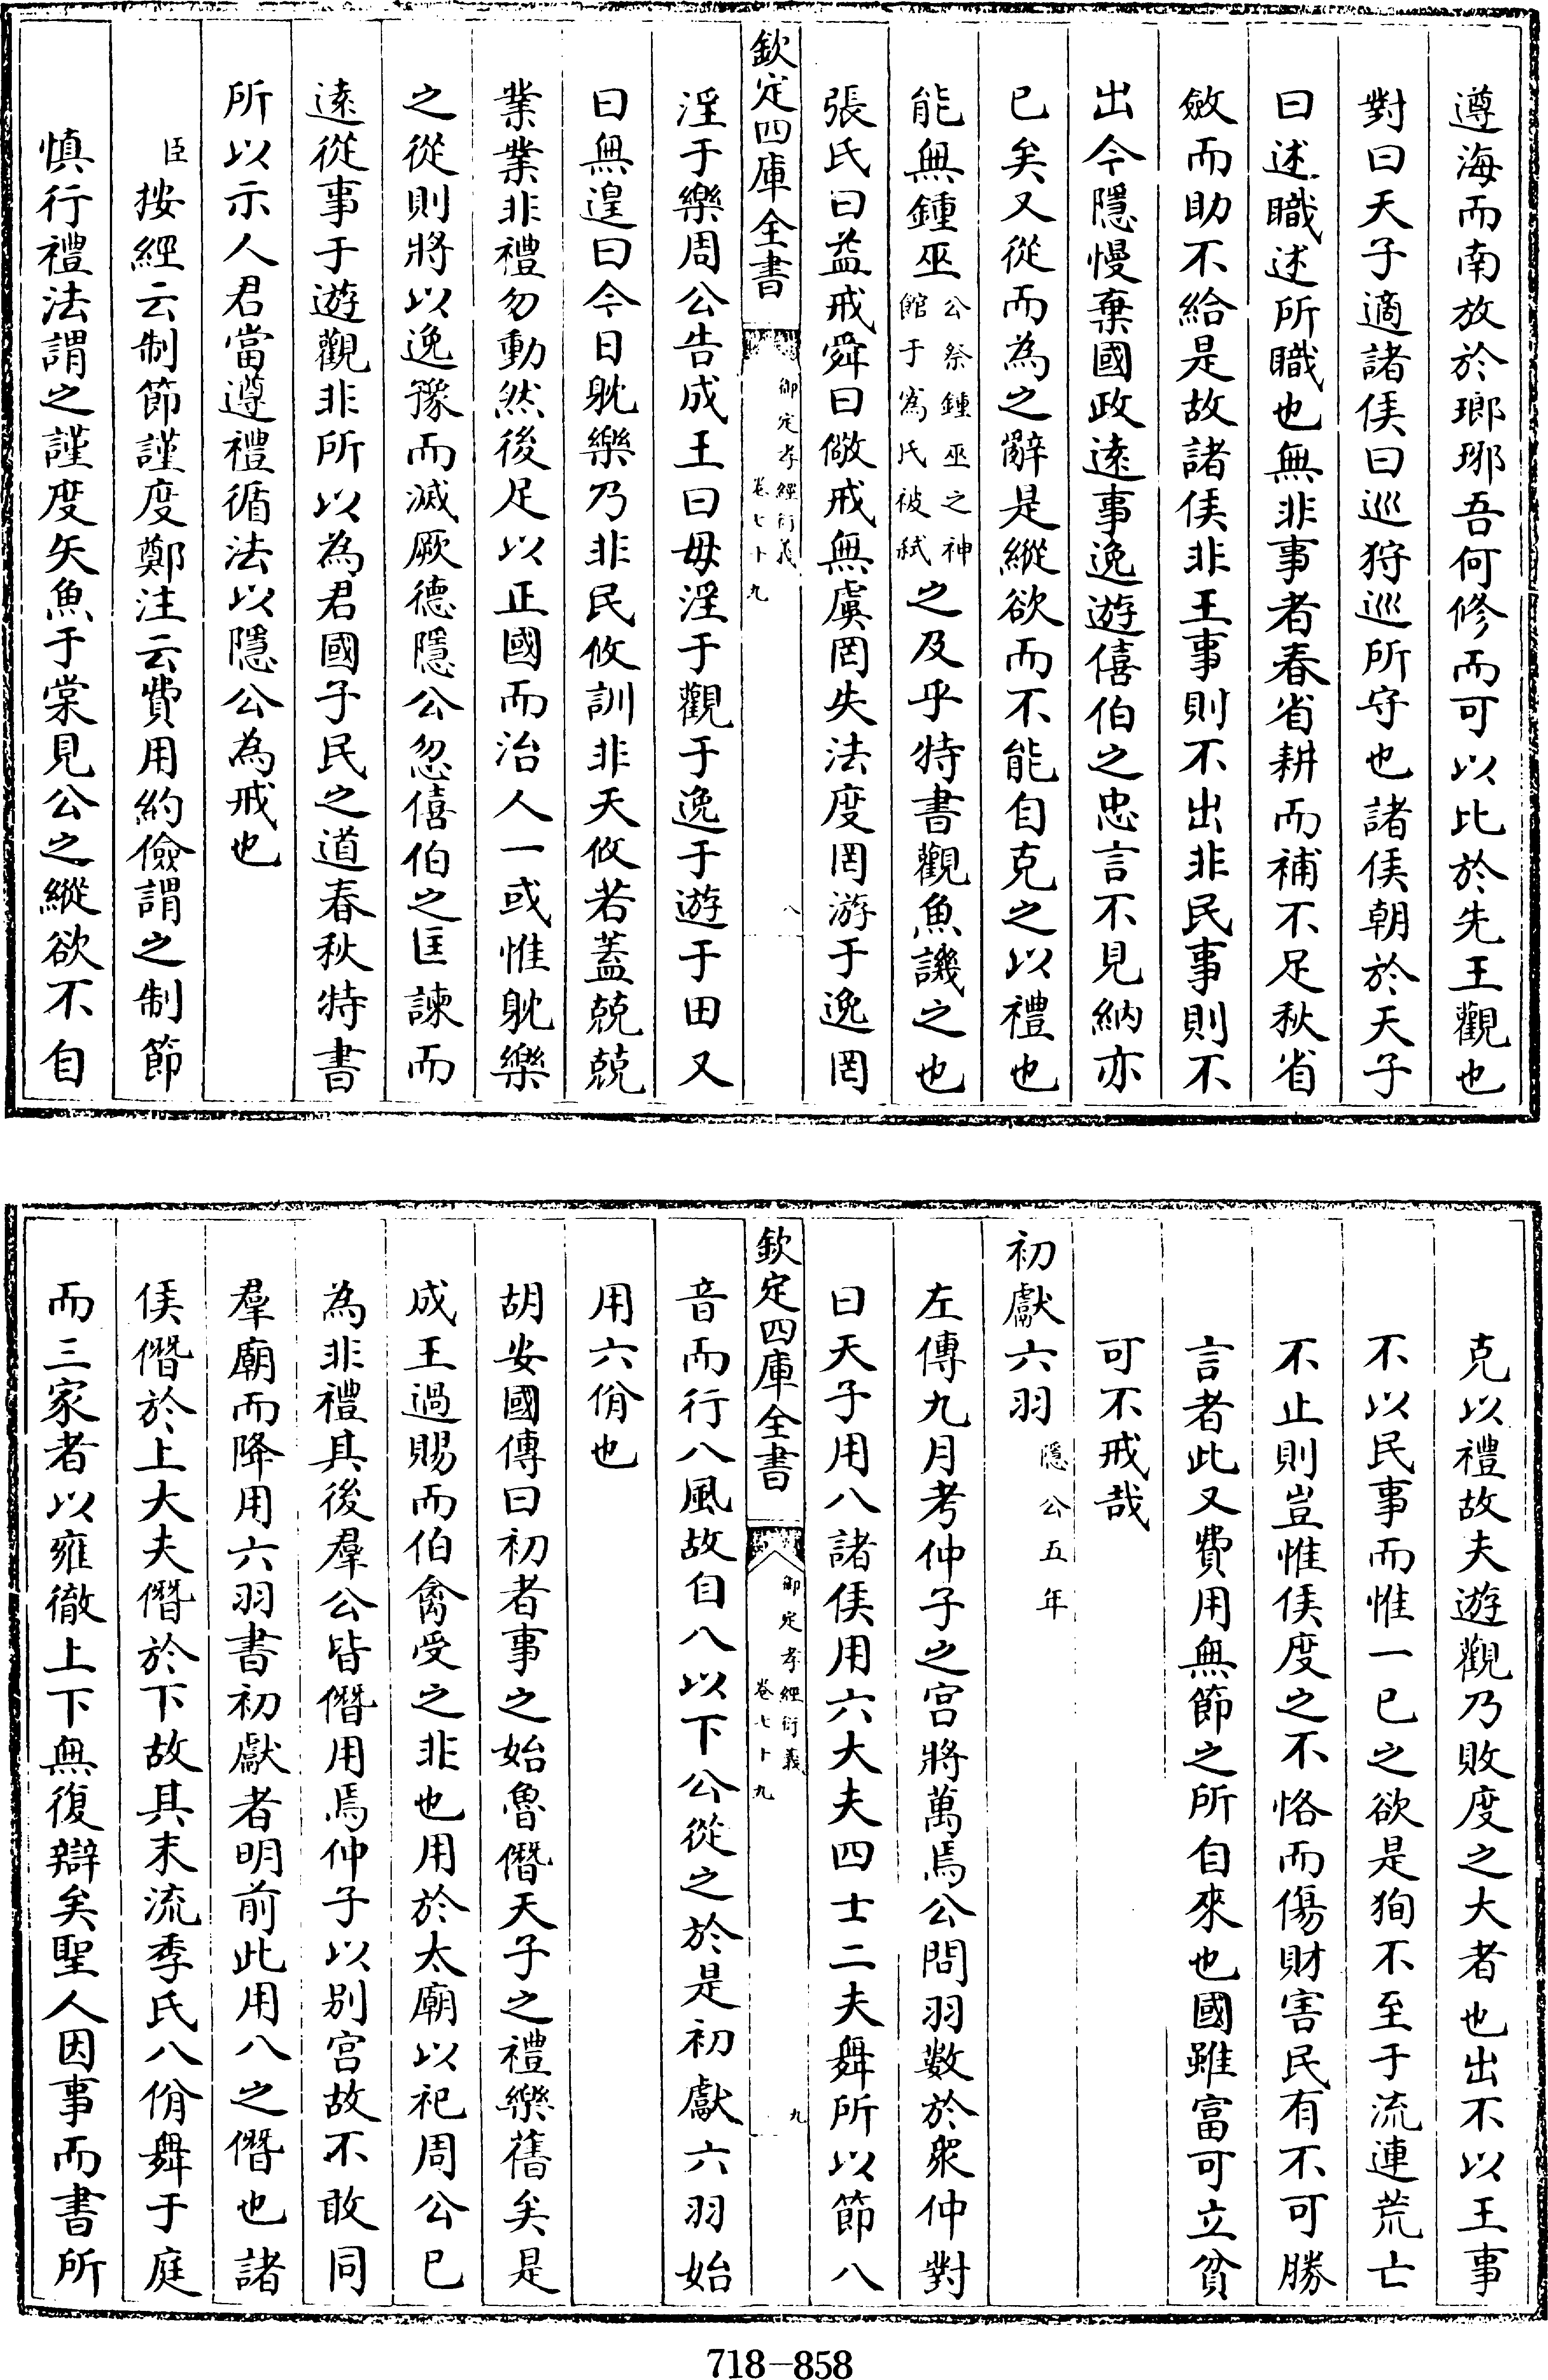 遵海而南放於瑯琊吾何修而可以比於先王觀也
對曰天子適諸侯曰巡狩巡所守也諸侯朝於天子
曰述職述所職也無非事者春省耕而補不足秋省
斂而助不給是故諸侯非王事則不出非民事則不
出今隱慢棄國政遠事逸遊僖伯之忠言不見納亦
已矣又從而為之辭是縱欲而不能自克之以禮也
能無鍾巫公祭鍾巫之神館于寪氏被弑之及乎特書觀魚譏之也
張氏曰益戒舜曰儆戒無虞罔失法度罔游于逸罔
欽定四庫全書 御定孝經衍義 卷七十九 八
淫于樂周公告成王曰毋淫于觀于逸于遊于田又
曰無遑曰今日耽樂乃非民攸訓非天攸若蓋兢兢
業業非禮勿動然後足以正國而治人一或惟耽樂
之從則將以逸豫而滅厥德隱公忽僖伯之匡諫而
遠從事于遊觀非所以為君國子民之道春秋特書
所以示人君當遵禮循法以隱公為戒也
臣按經云制節謹度鄭注云費用約儉謂之制節
慎行禮法謂之謹度矢魚于棠見公之縱欲不自
克以禮故夫遊觀乃敗度之大者也出不以王事
不以民事而惟一已之欲是狥不至于流連荒亡
不止則豈惟侯度之不恪而傷財害民有不可勝
言者此又費用無節之所自來也國雖富可立貧
可不戒哉
初獻六羽隱公五年
左傳九月考仲子之宮將萬焉公問羽數於衆仲對
曰天子用八諸侯用六大夫四士二夫舞所以節八
欽定四庫全書 御定孝經衍義 卷七十九 九
音而行八風故自八以下公從之於是初獻六羽始
用六佾也
胡安國傳曰初者事之始魯僭天子之禮樂舊矣是
成王過賜而伯禽受之非也用於太廟以祀周公已
為非禮其後羣公皆僭用焉仲子以別宮故不敢同
羣廟而降用六羽書初獻者明前此用八之僭也諸
侯僭於上大夫僭於下故其末流季氏八佾舞于庭
而三家者以雍徹上下無復辯矣聖人因事而書所
718-858